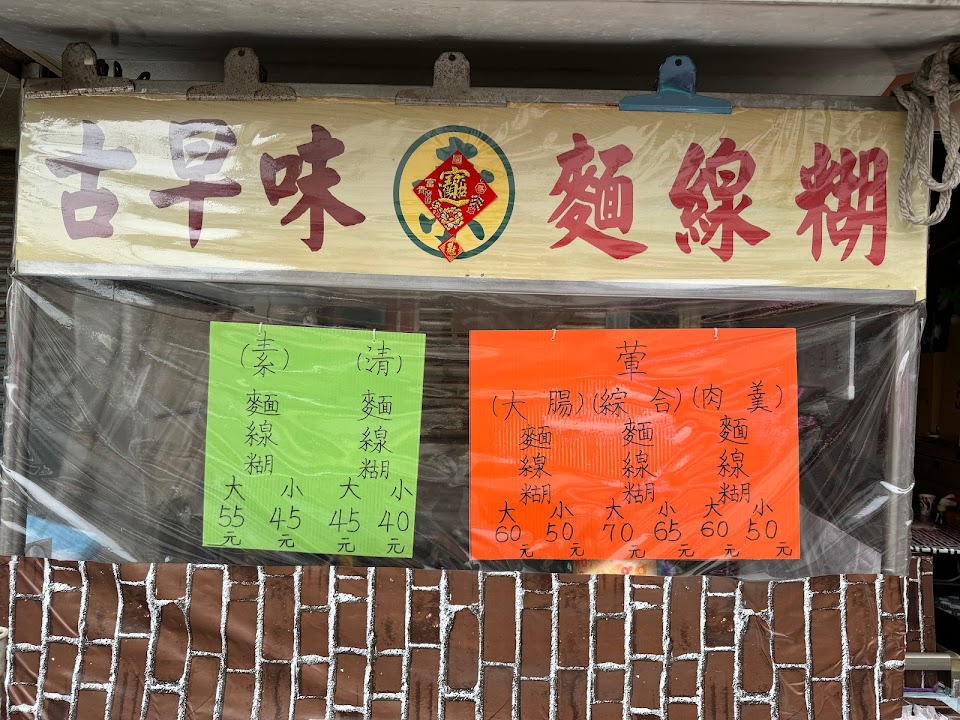 古早味 素 麵線糊
(素) (清)
麵線糊 麵線糊
大 小 大 小
55元 45元 45元 40元
葷
(大腸) (綜合) (肉羹)
麵線糊 麵線糊 麵線糊
大 小 大 小 大 小
60元 50元 70元 65元 60元 50元